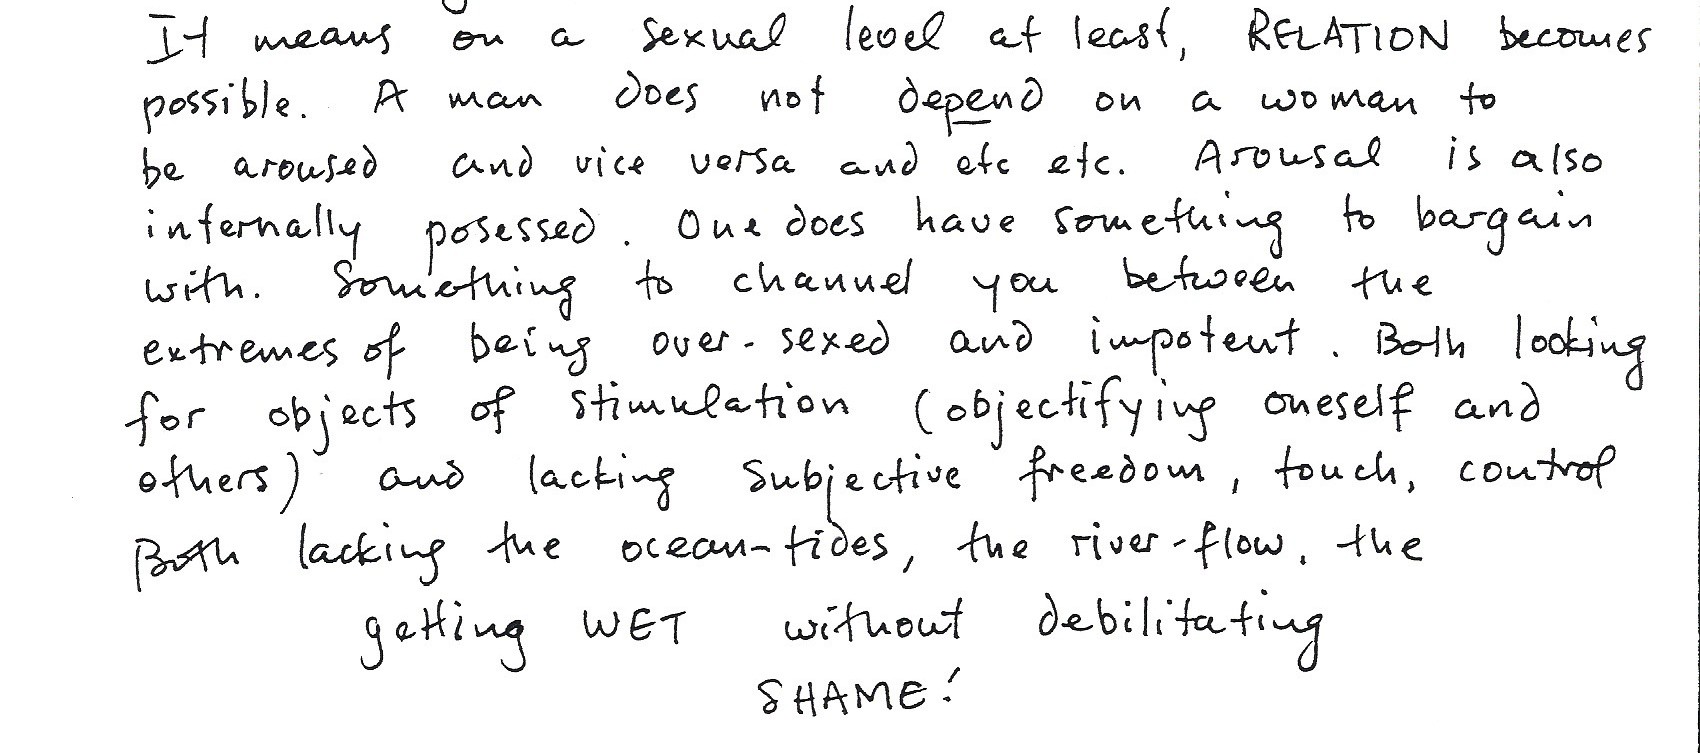 It means on a sexual level at least, RELATION becomes
possible. A man does not depend on a woman to
be aroused and vice versa and etc etc. Arousal is also
internally posessed. One does have something to bargain
with. Something to channel you between the
extremes of being over-sexed and impotent. Both looking
for objects of stimulation (objectifying oneself and
others) and lacking subjective freedom, touch, control
Both lacking the ocean-tides, the river-flow, the
getting WET without debilitating
SHAME!